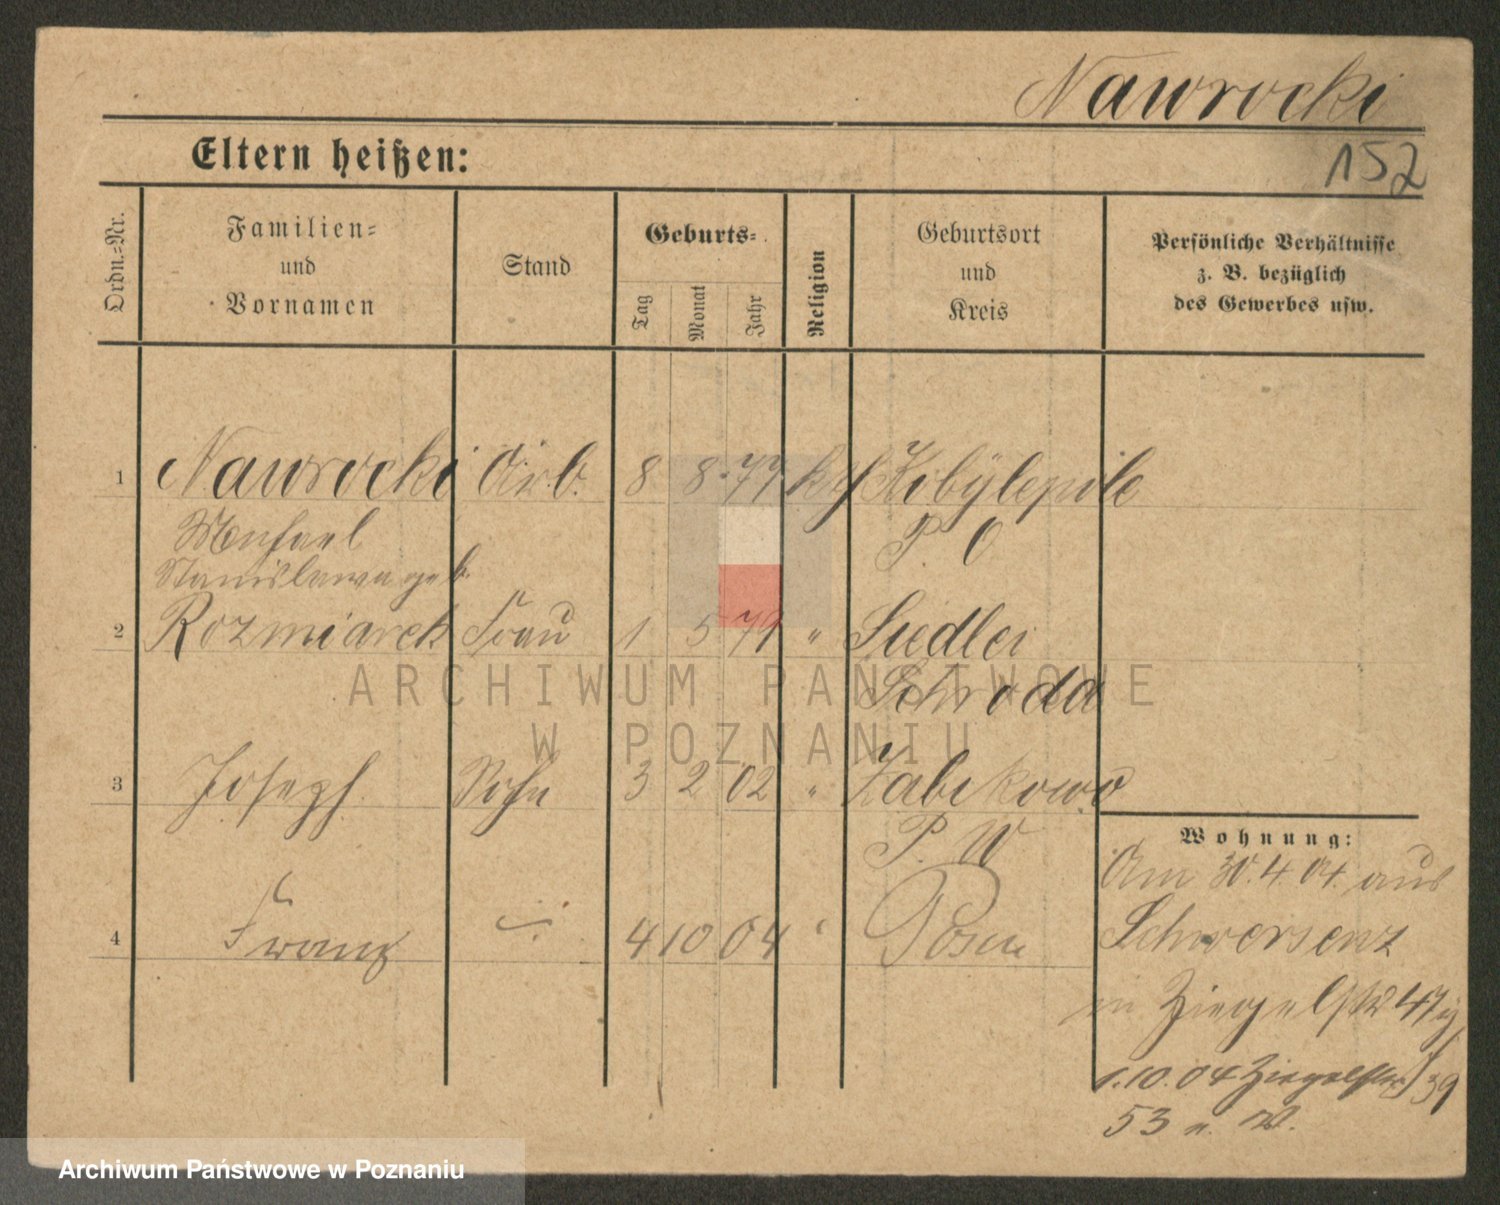 Nawrocki
Eltern heißen:
152
Ordn.=Nr.
Familien=
und
Vornamen
Stand
Geburts=
Tag
Monat
Jahr
Religion
Geburtsort
und
Kreis
Persönliche Verhältnisse
z. B. bezüglich
des Gewerbes usw.
1 Nawrocki Arb. 8 8 77 kth Kobylepole
Michael P. O
Stanislawa geb.
2 Rozmiarek Frau 1 5 79 " Siedlei
Schroda
3 Joseph Sohn 3 2 02 " Zabikowo
P. W
4 Franz 4 10 04 " Posen
Wohnung:
Am 30.4.04. aus
Schwersenz
in 47
1.10.04 39
53 n. W.
ARCHIWUM PAŃSTWOWE
W POZNANIU
Archiwum Państwowe w Poznaniu